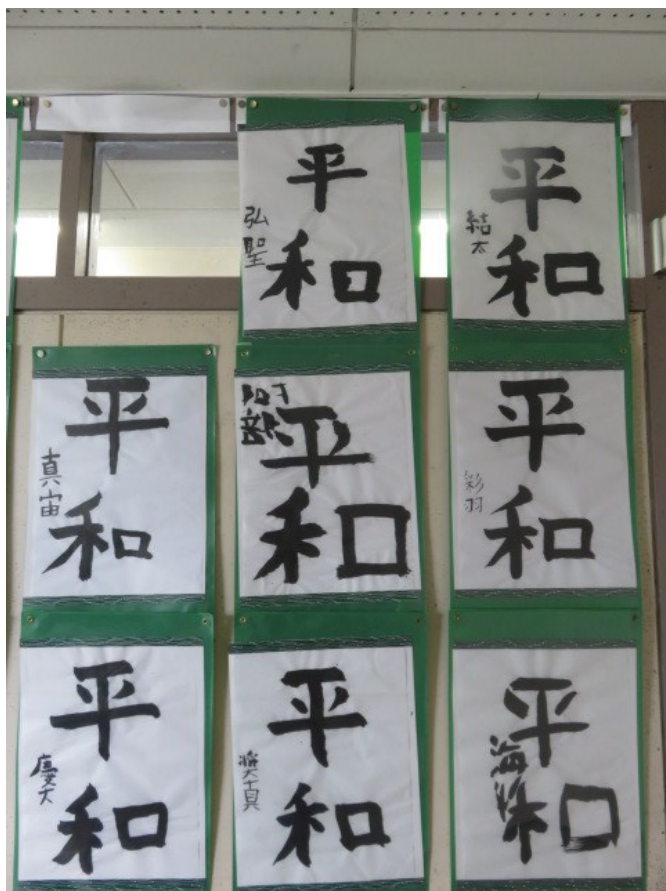 平
和
弘聖
平
和
結太
平
和
真宙
平
和
阿部
平
和
彩羽
平
和
慶大
平
和
平
和